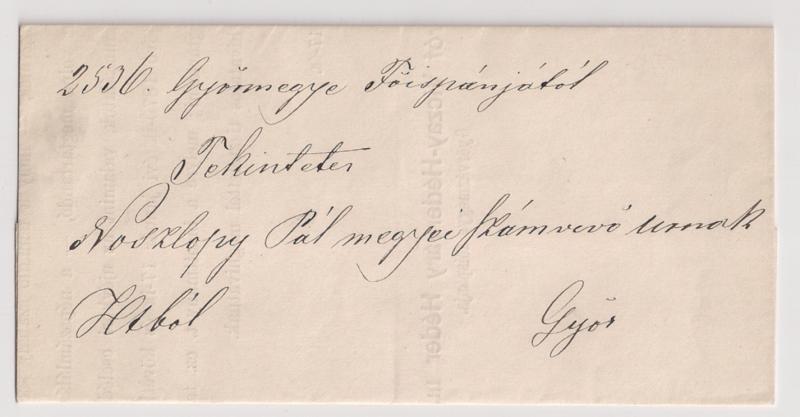 2536. Győrmegye Főispánjától
Tekintetes
Noszlopy Pál megyei számvevő urnak
Htból Győr